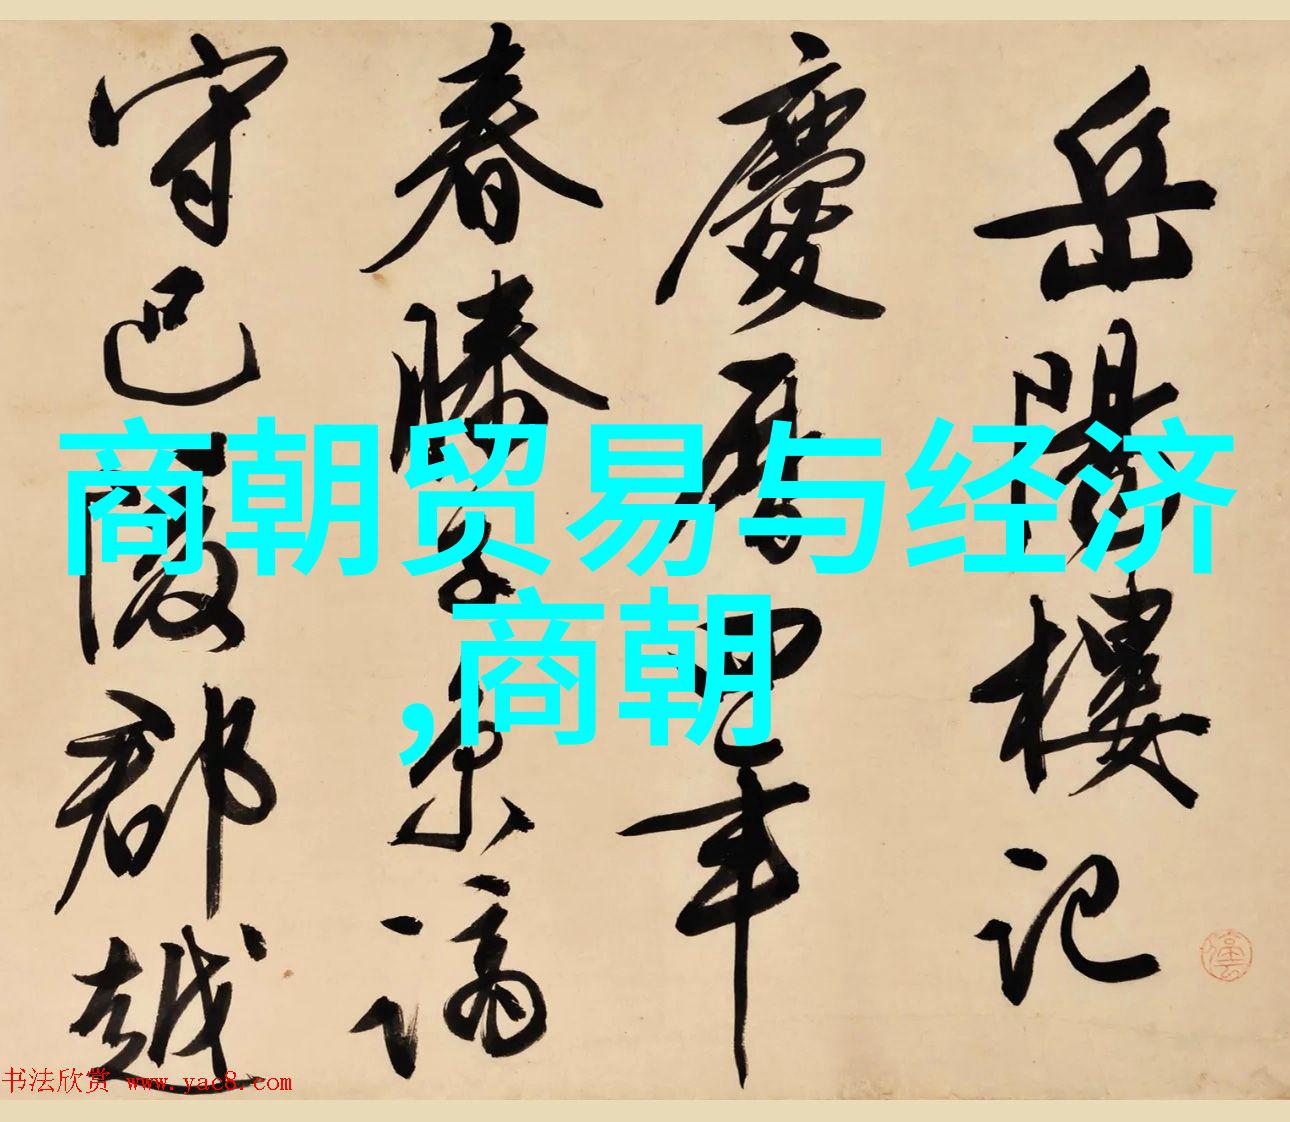 岳陽樓記
慶曆四年
春滕子京謫
守巴陵郡越
商朝贸易与经济
,商朝
书法欣赏 www.yac8.com